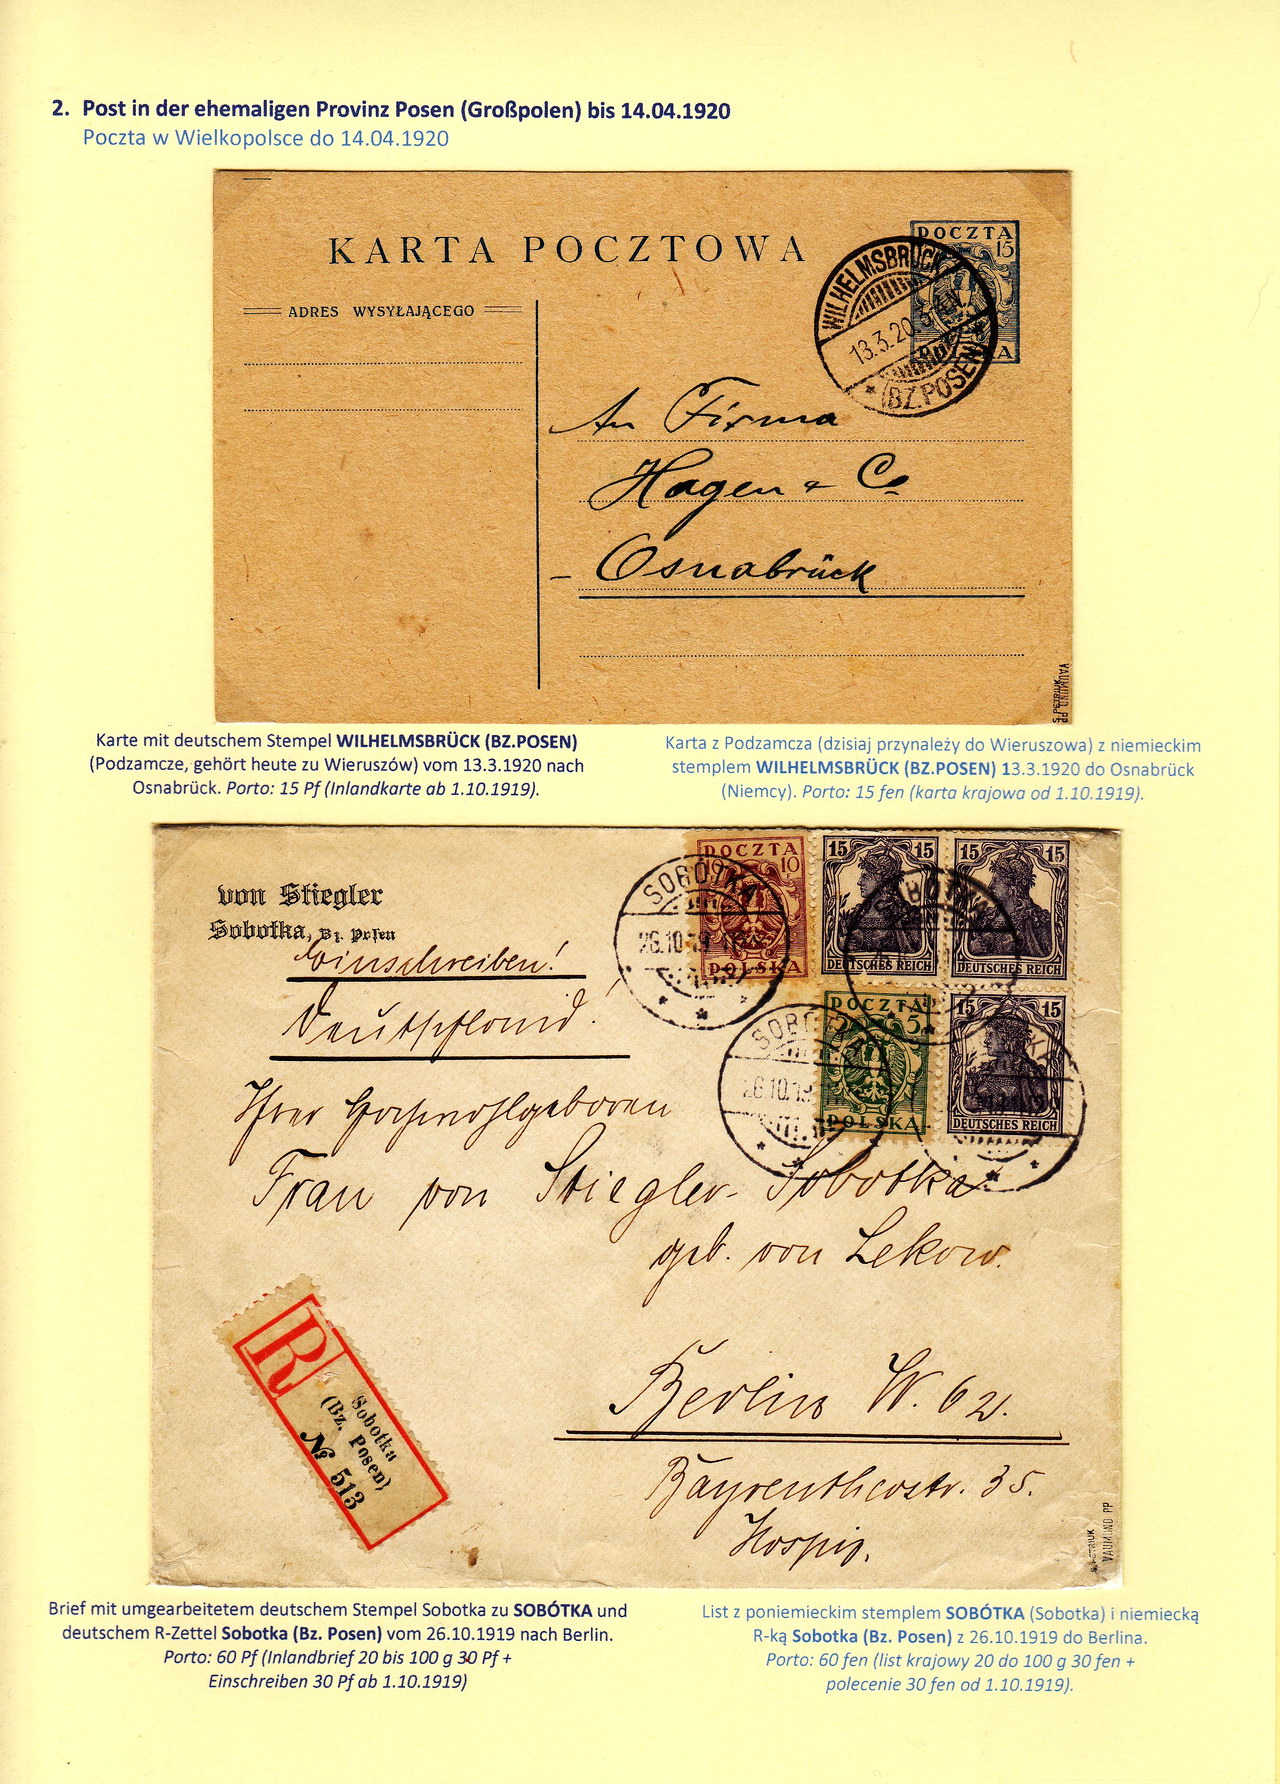 2. Post in der ehemaligen Provinz Posen (Großpolen) bis 14.04.1920
Poczta w Wielkopolsce do 14.04.1920
KARTA POCZTOWA
POCZTA
15
WILHELMSBRÜCK
13.3.20
(BZ.POSEN)
ADRES WYSYŁAJĄCEGO
An Firma
Hagen & Co
Osnabrück
S. PETRIUK
VAUMUND PP
Karte mit deutschem Stempel WILHELMSBRÜCK (BZ.POSEN)
(Podzamcze, gehört heute zu Wieruszów) vom 13.3.1920 nach
Osnabrück. Porto: 15 Pf (Inlandkarte ab 1.10.1919).
Karta z Podzamcza (dzisiaj przynależy do Wieruszowa) z niemieckim
stemplem WILHELMSBRÜCK (BZ.POSEN) 13.3.1920 do Osnabrück
(Niemcy). Porto: 15 fen (karta krajowa od 1.10.1919).
POCZTA
10
POLSKA
15 15
DEUTSCHES REICH
15 15
DEUTSCHES REICH
POCZTA
5
POLSKA
15 15
DEUTSCHES REICH
SOBÓTKA
26.10.19
SOBÓTKA
26.10.19
von Stiegler
Sobotka, Bz. Posen
Einschreiben!
Deutschland!
Ihrer Hochwohlgeboren
Frau von Stiegler-Sobotka
geb. von Lekow.
Berlin W. 62.
Bayreutherstr. 35.
Hospiz.
R
Sobotka
(Bz. Posen)
№ 513
S. PETRIUK
VAUMUND PP
Brief mit umgearbeitetem deutschem Stempel Sobotka zu SOBÓTKA und
deutschem R-Zettel Sobotka (Bz. Posen) vom 26.10.1919 nach Berlin.
Porto: 60 Pf (Inlandbrief 20 bis 100 g 30 Pf +
Einschreiben 30 Pf ab 1.10.1919)
List z poniemieckim stemplem SOBÓTKA (Sobotka) i niemiecką
R-ką Sobotka (Bz. Posen) z 26.10.1919 do Berlina.
Porto: 60 fen (list krajowy 20 do 100 g 30 fen +
polecenie 30 fen od 1.10.1919).